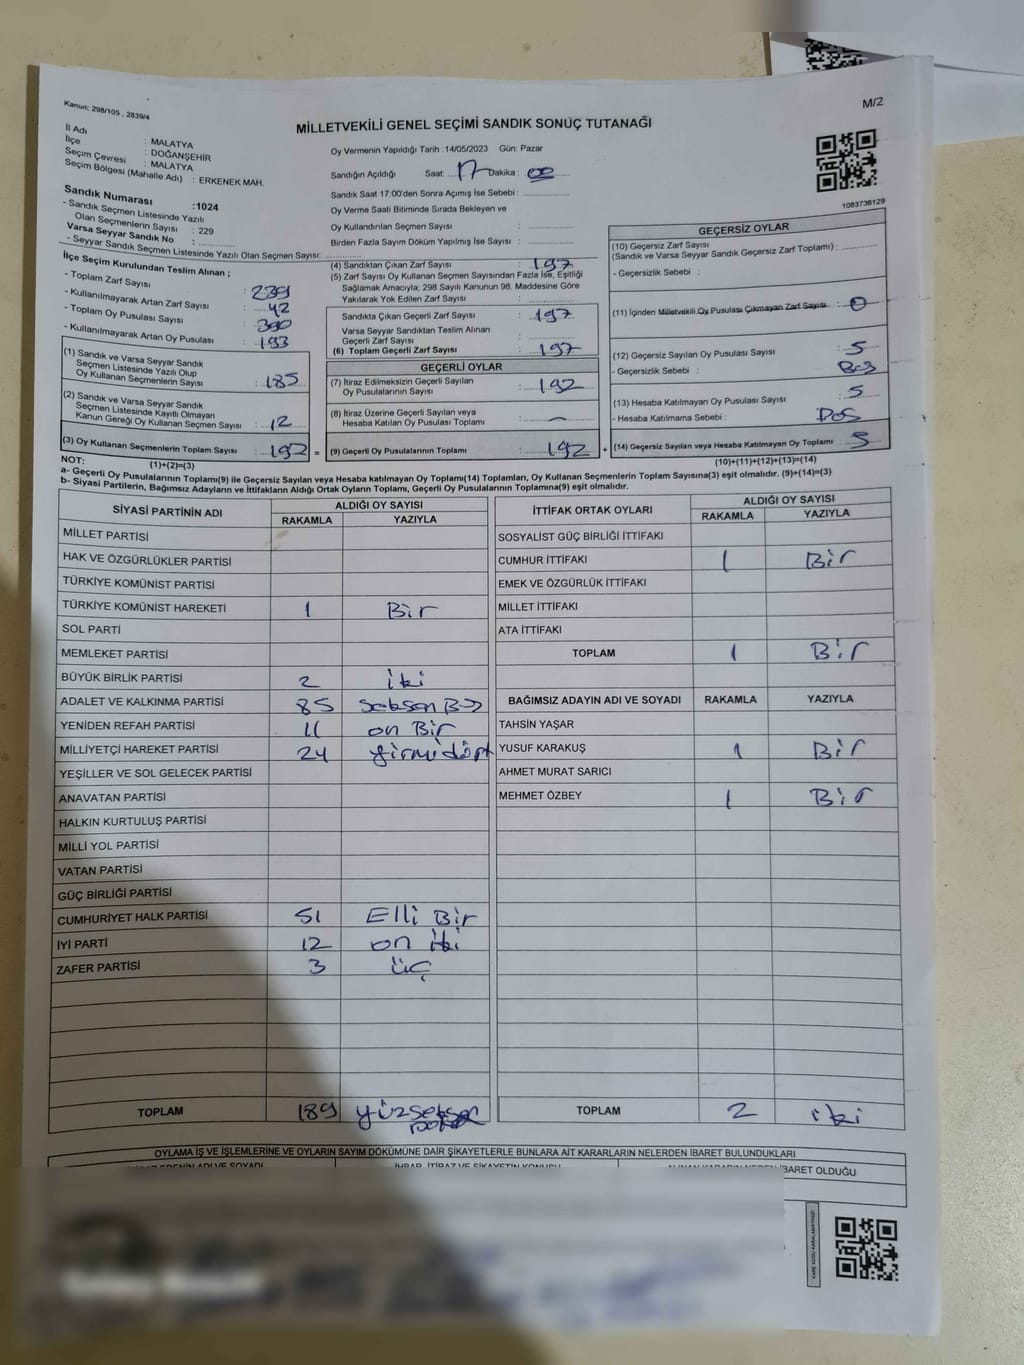 Kanun; 298/105 , 2839/4
M/2
MİLLETVEKİLİ GENEL SEÇİMİ SANDIK SONUÇ TUTANAĞI
İl Adı : MALATYA
İlçe : DOĞANŞEHİR
Seçim Çevresi : MALATYA
Seçim Bölgesi (Mahalle Adı) : ERKENEK MAH.
Sandık Numarası :1024
- Sandık Seçmen Listesinde Yazılı
Olan Seçmenlerin Sayısı : 229
Varsa Seyyar Sandık No :
- Seyyar Sandık Seçmen Listesinde Yazılı Olan Seçmen Sayısı:
İlçe Seçim Kurulundan Teslim Alınan ;
- Toplam Zarf Sayısı : 239
- Kullanılmayarak Artan Zarf Sayısı : 42
- Toplam Oy Pusulası Sayısı :
- Kullanılmayarak Artan Oy Pusulası : 193
(1) Sandık ve Varsa Seyyar Sandık
Seçmen Listesinde Yazılı Olup
Oy Kullanan Seçmenlerin Sayısı : 185
(2) Sandık ve Varsa Seyyar Sandık
Seçmen Listesinde Kayıtlı Olmayan
Kanun Gereği Oy Kullanan Seçmen Sayısı : 12
(3) Oy Kullanan Seçmenlerin Toplam Sayısı : 197 =
Oy Vermenin Yapıldığı Tarih : 14/05/2023 Gün: Pazar
Sandığın Açıldığı Saat: 17 Dakika : 00
Sandık Saat 17:00'den Sonra Açımış İse Sebebi :
Oy Verme Saati Bitiminde Sırada Bekleyen ve
Oy Kullandırılan Seçmen Sayısı :
Birden Fazla Sayım Döküm Yapılmış İse Sayısı :
(4) Sandıktan Çıkan Zarf Sayısı : 197
(5) Zarf Sayısı Oy Kullanan Seçmen Sayısından Fazla İse, Eşitliği
Sağlamak Amacıyla; 298 Sayılı Kanunun 98. Maddesine Göre
Yakılarak Yok Edilen Zarf Sayısı :
Sandıkta Çıkan Geçerli Zarf Sayısı : 197
Varsa Seyyar Sandıktan Teslim Alınan
Geçerli Zarf Sayısı :
(6) Toplam Geçerli Zarf Sayısı : 197
GEÇERLİ OYLAR
(7) İtiraz Edilmeksizin Geçerli Sayılan
Oy Pusulalarının Sayısı : 192
(8) İtiraz Üzerine Geçerli Sayılan veya
Hesaba Katılan Oy Pusulası Toplamı : -
(9) Geçerli Oy Pusulalarının Toplamı : 192 +
1083736129
GEÇERSİZ OYLAR
(10) Geçersiz Zarf Sayısı
(Sandık ve Varsa Seyyar Sandık Geçersiz Zarf Toplamı) :
- Geçersizlik Sebebi :
(11) İçinden Milletvekili Oy Pusulası Çıkmayan Zarf Sayısı : 0
(12) Geçersiz Sayılan Oy Pusulası Sayısı : 5
- Geçersizlik Sebebi :
(13) Hesaba Katılmayan Oy Pusulası Sayısı : 5
- Hesaba Katılmama Sebebi :
(14) Geçersiz Sayılan veya Hesaba Katılmayan Oy Toplamı : 5
NOT: (1)+(2)=(3)
(10)+(11)+(12)+(13)=(14)
a- Geçerli Oy Pusulalarının Toplamı(9) ile Geçersiz Sayılan veya Hesaba katılmayan Oy Toplamı(14) Toplamları, Oy Kullanan Seçmenlerin Toplam Sayısına(3) eşit olmalıdır. (9)+(14)=(3)
b- Siyasi Partilerin, Bağımsız Adayların ve İttifakların Aldığı Ortak Oyların Toplamı, Geçerli Oy Pusulalarının Toplamına(9) eşit olmalıdır.
SİYASİ PARTİNİN ADI ALDIĞI OY SAYISI
RAKAMLA YAZIYLA
MİLLET PARTİSİ
HAK VE ÖZGÜRLÜKLER PARTİSİ
TÜRKİYE KOMÜNİST PARTİSİ
TÜRKİYE KOMÜNİST HAREKETİ 1 Bir
SOL PARTİ
MEMLEKET PARTİSİ
BÜYÜK BİRLİK PARTİSİ 2 iki
ADALET VE KALKINMA PARTİSİ 85
YENİDEN REFAH PARTİSİ 11 on Bir
MİLLİYETÇİ HAREKET PARTİSİ 24 yirmi dört
YEŞİLLER VE SOL GELECEK PARTİSİ
ANAVATAN PARTİSİ
HALKIN KURTULUŞ PARTİSİ
MİLLİ YOL PARTİSİ
VATAN PARTİSİ
GÜÇ BİRLİĞİ PARTİSİ
CUMHURİYET HALK PARTİSİ 51 Elli Bir
İYİ PARTİ 12 on iki
ZAFER PARTİSİ 3 üç
TOPLAM 189
İTTİFAK ORTAK OYLARI ALDIĞI OY SAYISI
RAKAMLA YAZIYLA
SOSYALİST GÜÇ BİRLİĞİ İTTİFAKI
CUMHUR İTTİFAKI 1 Bir
EMEK VE ÖZGÜRLÜK İTTİFAKI
MİLLET İTTİFAKI
ATA İTTİFAKI
TOPLAM 1 Bir
BAĞIMSIZ ADAYIN ADI VE SOYADI RAKAMLA YAZIYLA
TAHSİN YAŞAR
YUSUF KARAKUŞ 1 Bir
AHMET MURAT SARICI
MEHMET ÖZBEY 1 Bir
TOPLAM 2 iki
OYLAMA İŞ VE İŞLEMLERİNE VE OYLARIN SAYIM DÖKÜMÜNE DAİR ŞİKAYETLERLE BUNLARA AİT KARARLARIN NELERDEN İBARET BULUNDUKLARI
İBARET OLDUĞU